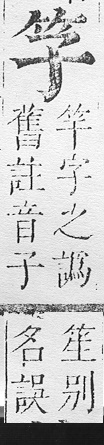 竽字之譌
舊註音子
笙別
名誤